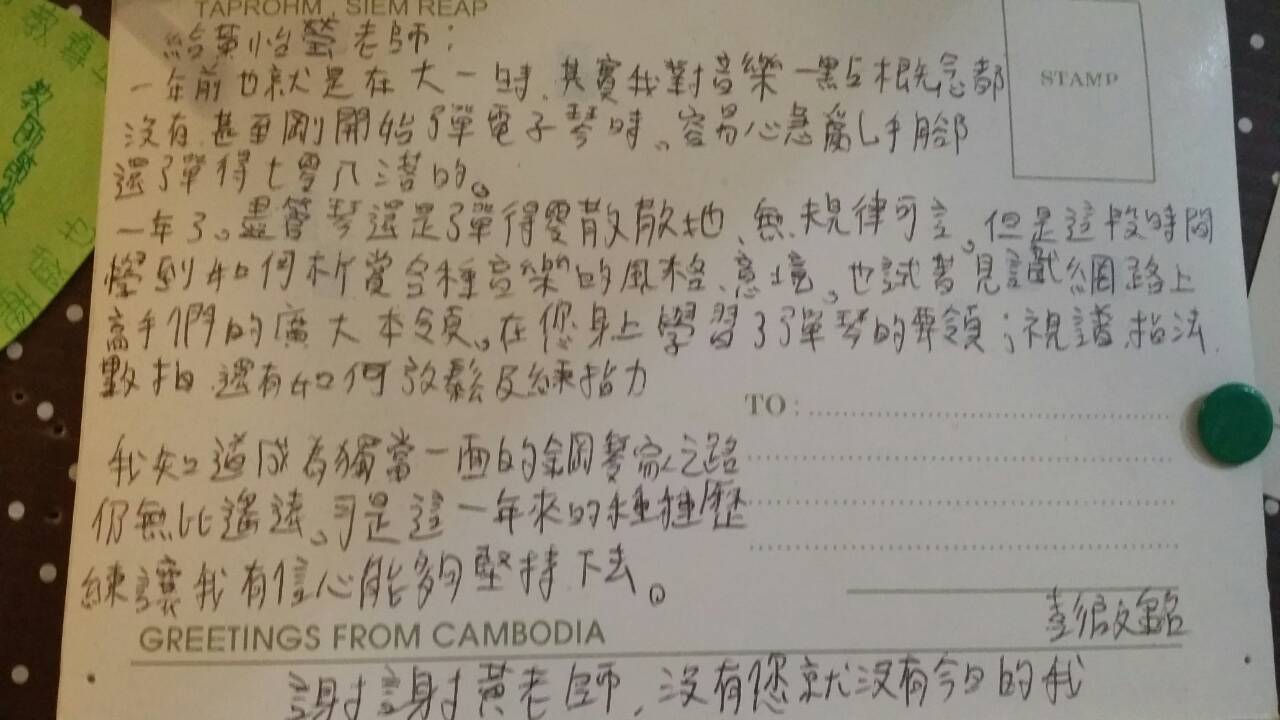 TAPROHM , SIEM REAP
給黃怡蓥老師:
STAMP
一年前也就是在大一時、其實我對音樂一點概念都
沒有、甚至剛開始彈電子琴時、容易心急亂手腳
還彈得七零八落的。
一年了。盡管琴還是彈得零散散地、無規律可言。但是這段時間
學到如何析賞各種音樂的風格、意境。也試著見識網路上
高手們的廣大本領。在您身上學習了彈琴的要領;視譜、指法、
數拍、還有如何放鬆及練指力
TO :
我知道成為獨當一面的鋼琴家之路
仍無比遙遠、可是這一年來的種種歷
練讓我有信心能夠堅持下去。
彭俊文銘
GREETINGS FROM CAMBODIA
謝謝黃老師、沒有您就沒有今日的我